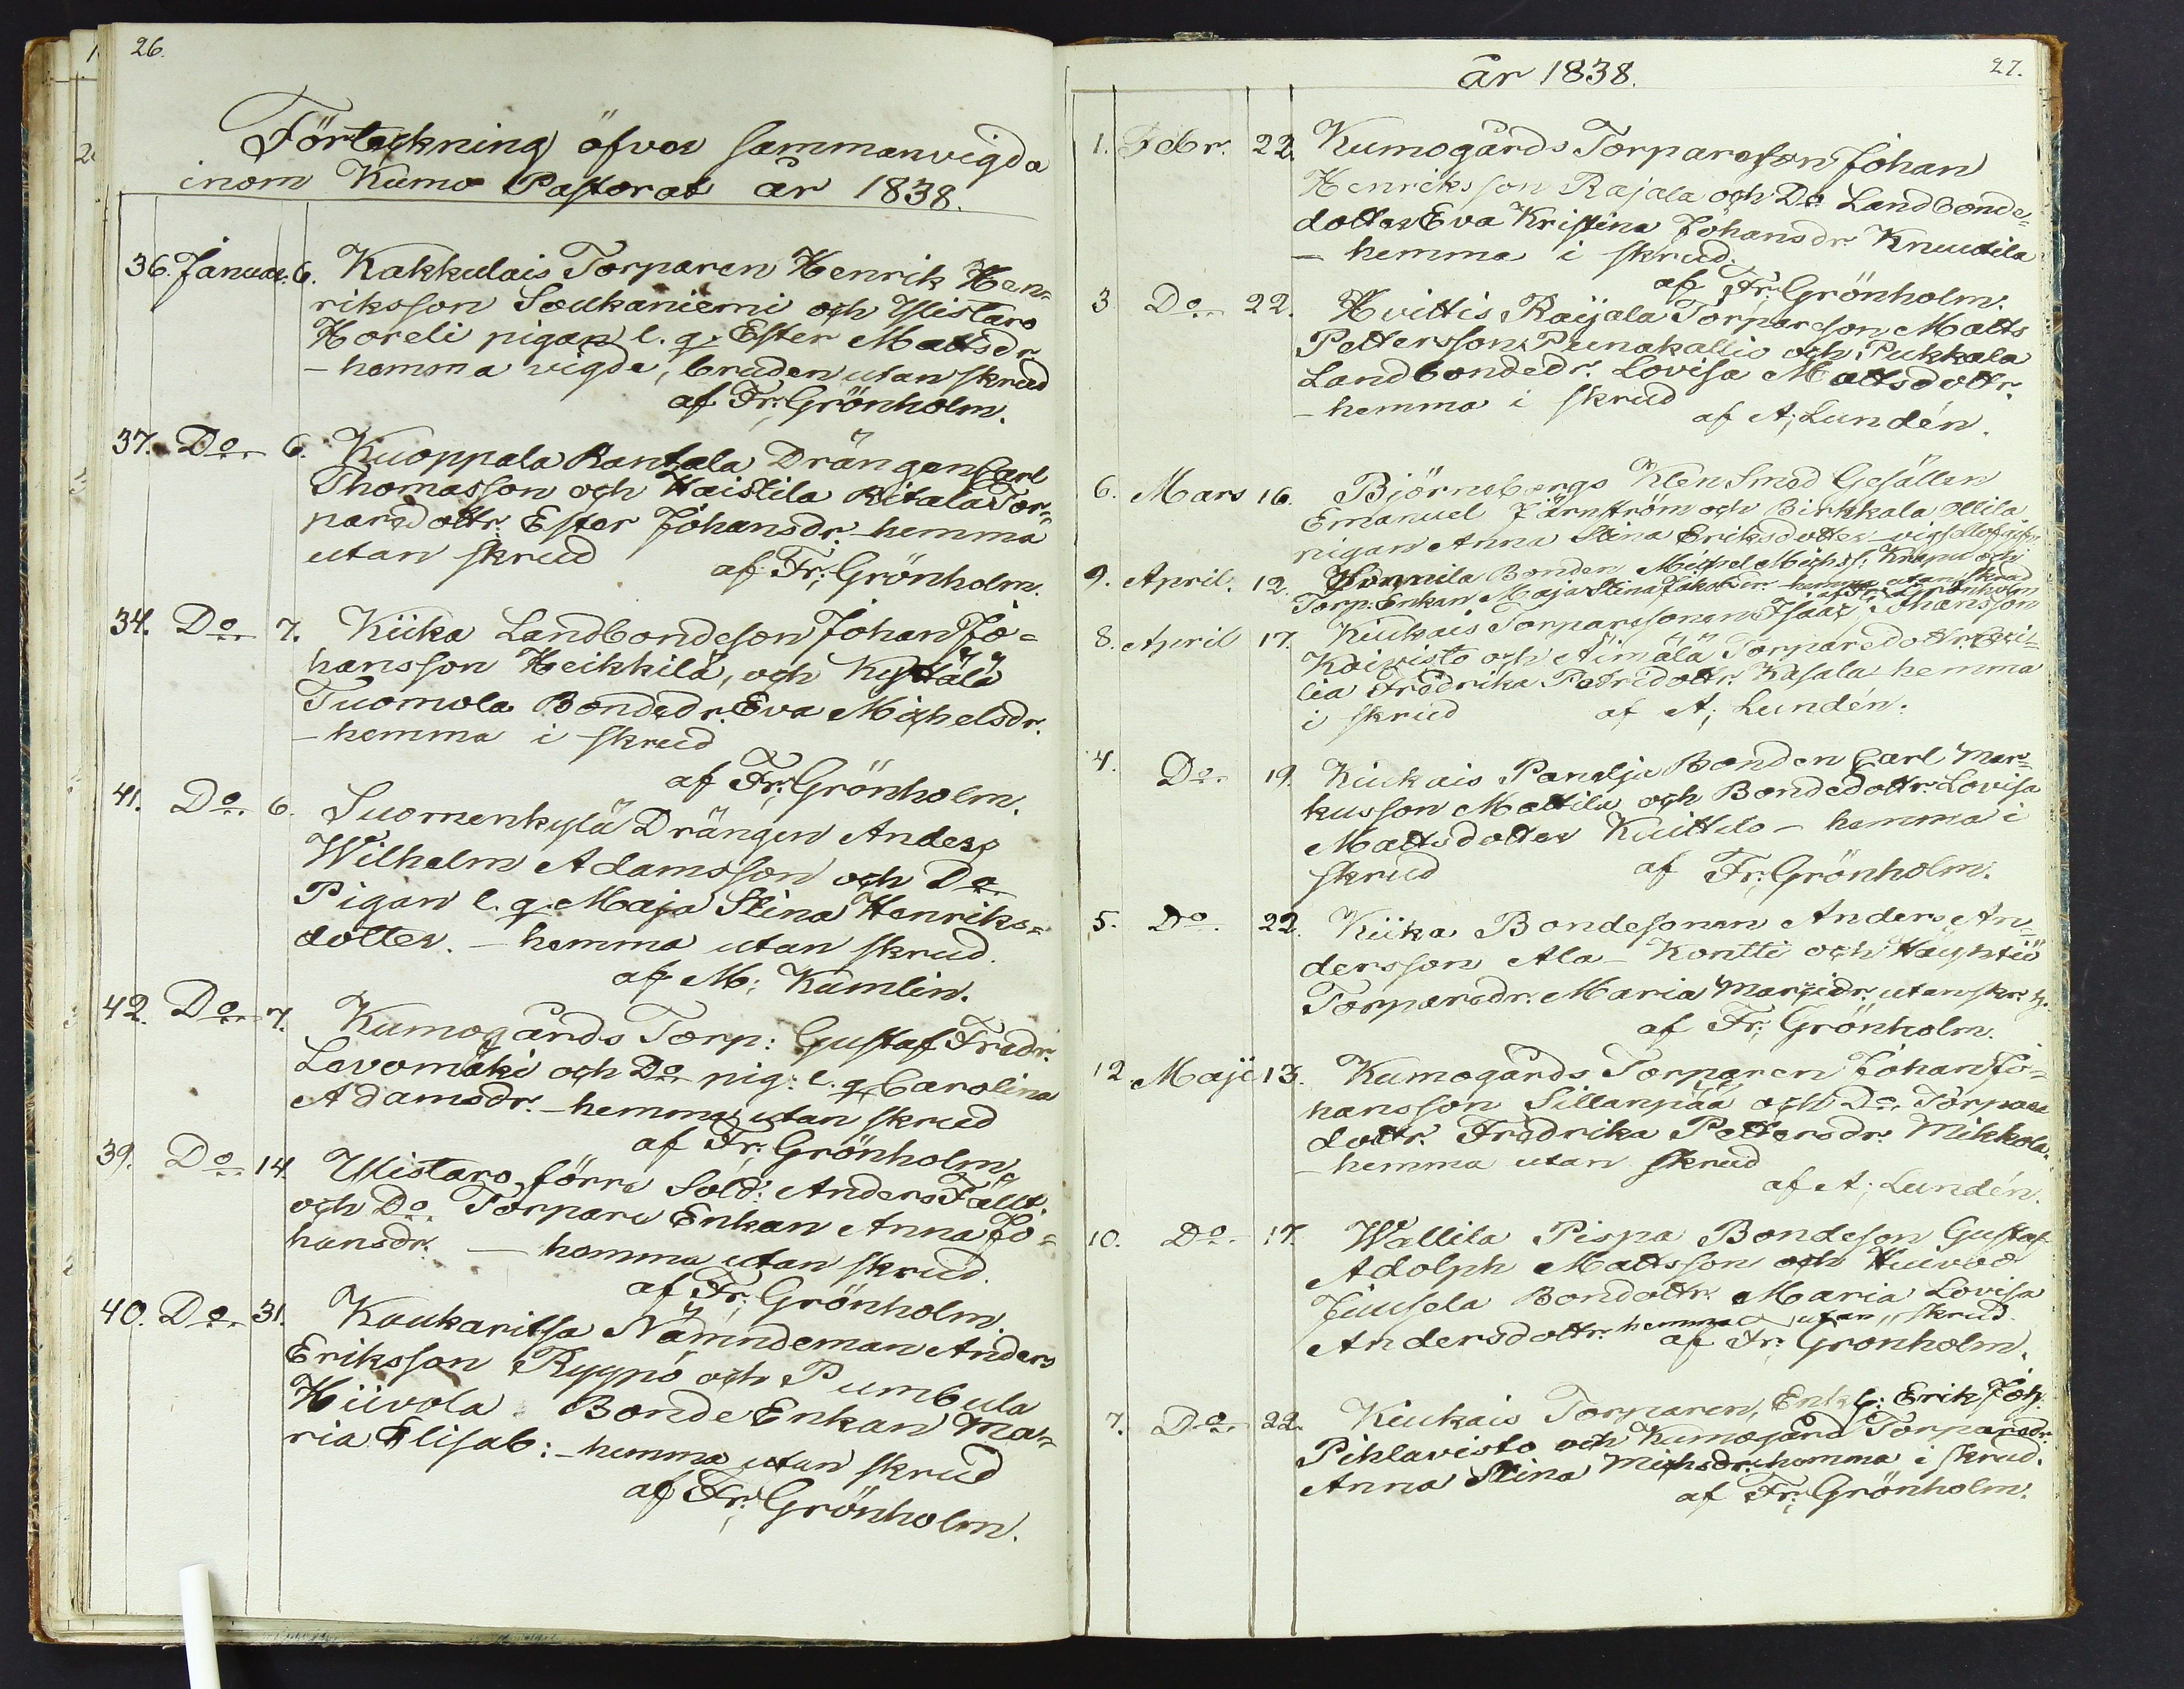 26.
Förteckning öfver sammanvigda
inom Kumo Pastorat år 1838.
36. Januar. 6. Kakkulais Torparen Henrik Hen=
riksson Soukaniemi och Ylistaro
Horeli pigan l. q. Ester Mattsdr
- hemma vigde, bruden utan skrud
af Fr: Grönholm.
37. Do 6. Kuoppala Rantala Drängen Carl
Thomasson och Haistila Ritala Tor=
paredottr. Ester Johansdr. - hemma
utan skrud af Fr: Grönholm.
34. Do 7. Kiika Landbondeson Johan Jo=
hansson Heikkilä, och Kyttälä
Tuomola Bondedr. Eva Michelsdr.
- hemma i skrud
af Fr: Grönholm.
41. Do 6. Suomenkylä Drängen Anders
Wilhelm Adamsson och Do
Pigan l. q. Maja Stina Henriks=
dotter. - hemma utan skrud.
af M: Kumlin.
42. Do 7. Kumogårds Torp: Gustaf Fredr.
Levomäki och Do pig: l. q. Carolina
Adamsdr. - hemma utan skrud
af Fr: Grönholm.
39. Do 14. Ylistaro förra Sold: Anders Fällt
och Do Torpare Enkan Anna Jo=
hansdr. - hemma utan skrud.
af Fr: Grönholm.
40. Do 31. Koukaritsa Nämndeman Anders
Eriksson Ryypö och Pumbula
Hiivola Bonde Enkan Ma=
ria Elisab: - hemma utan skrud
af Fr: Grönholm.
år 1838.
27.
1. Febr. 22. Kumogårds Torpareson Johan
Henriksson Rajala och Do Landbonde=
dotter Eva Kristina Johansdr Knuutila
- hemma i skrud.
af Fr: Grönholm.
3 Do 22. Hvittis Raijala Torpareson Matts
Pettersson Punakallio och Pukkala
Landbondedr. Lovisa Mattsdottr.
- hemma i skrud af A; Lundén.
6. Mars 16. Björneborgs Klen Smed Gesällen
Emanuel Järnström och Birkkala Ollila
pigan Anna Stina Eriksdotter
9. April. 12. Bonden Michel Michss. Krapu och
Torp: Enkan Maja Stina Jakobsdr - hemma utan skrud
af Fr: Grönholm
8. April 17. Kiukais Torparesonen Isaac Johansson
Koivisto och Äimälä Torparedottr. Ceci=
lia Fredrika Petridottr. Kasala hemma
i skrud af A; Lundén.
4. Do 19. Kiukais Panelja Bonden Carl Mar=
kusson Mattila och Bondedottr. Lovisa
Mattsdotter Kuittilo - hemma i
skrud af Fr: Grönholm.
5. Do 22. Kiika Bondesonen Anders An=
dersson Ala-Kontti och Häyhtiö
Torparedr. Maria utan skr. h.
af Fr: Grönholm.
12 Maji 13. Kumogårds Torparen Johan Jo=
hansson Sillanpää och Do Torpare
dottr. Fredrika Pettersdr. Mikkola
- hemma utan skrud
af A; Lundén.
10. Do 17. Wallila Pispa Bondeson Gustaf
Adolph Mattsson och
Juusela Bondottr. Maria Lovisa
Andersdottr. hemma utan skrud.
af Fr: Grönholm.
7. Do 22. Kiukais Torparen, Enkl: Erik Joh:
Pihlavisto och Kumogård Torparedr.
Anna Stina Michsdr. hemma i skrud.
af Fr: Grönholm.